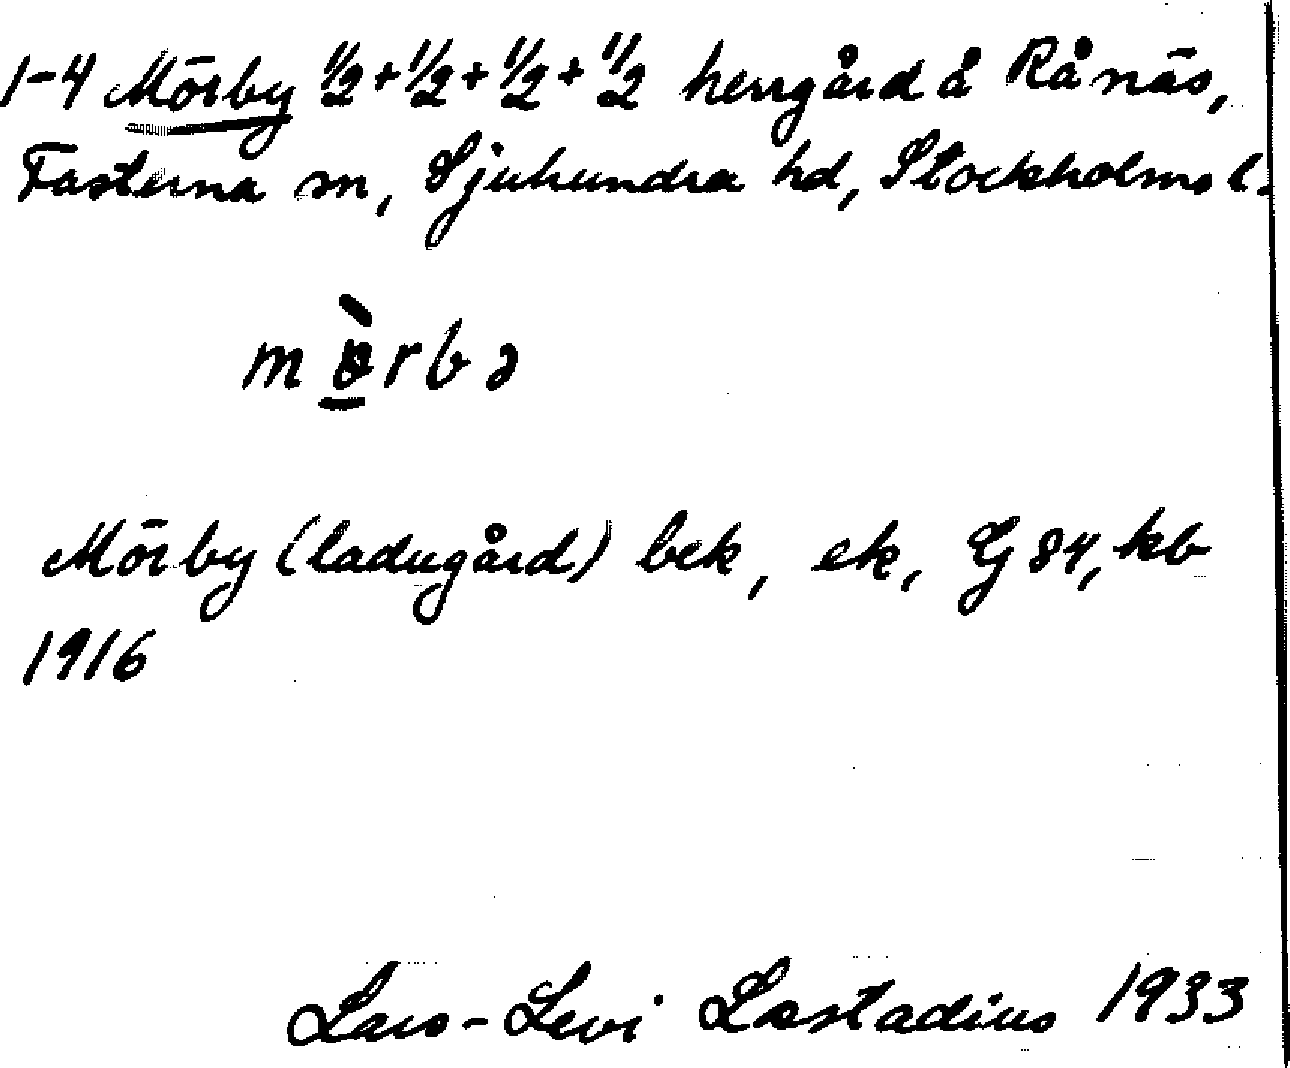 1-4 Mörby 1/2+1/2+1/2+1/2 herrgård å Rånäs,
Fasterna sn, Sjuhundra hd, Stockholms l.
m ö̀ r b ə
Mörby (ladugård) bek, ek, G 84, kb
1916
Lars-Levi Læstadius 1933